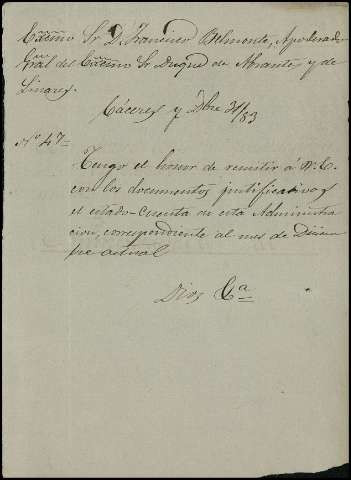 Exᵐᵒ Sr D. Francisco Belmonte, Apoderado
Gral del Exᵐᵒ Sr Duque de Abrantes y de
Linares.
Cáceres y Dbre 31/83
Nº 47=
Tengo el honor de remitir á V. E.
con los documentos justificativos
el estado-cuenta de esta Administra
cion, correspondiente al mes de Diciem
bre actual
Dios &ª